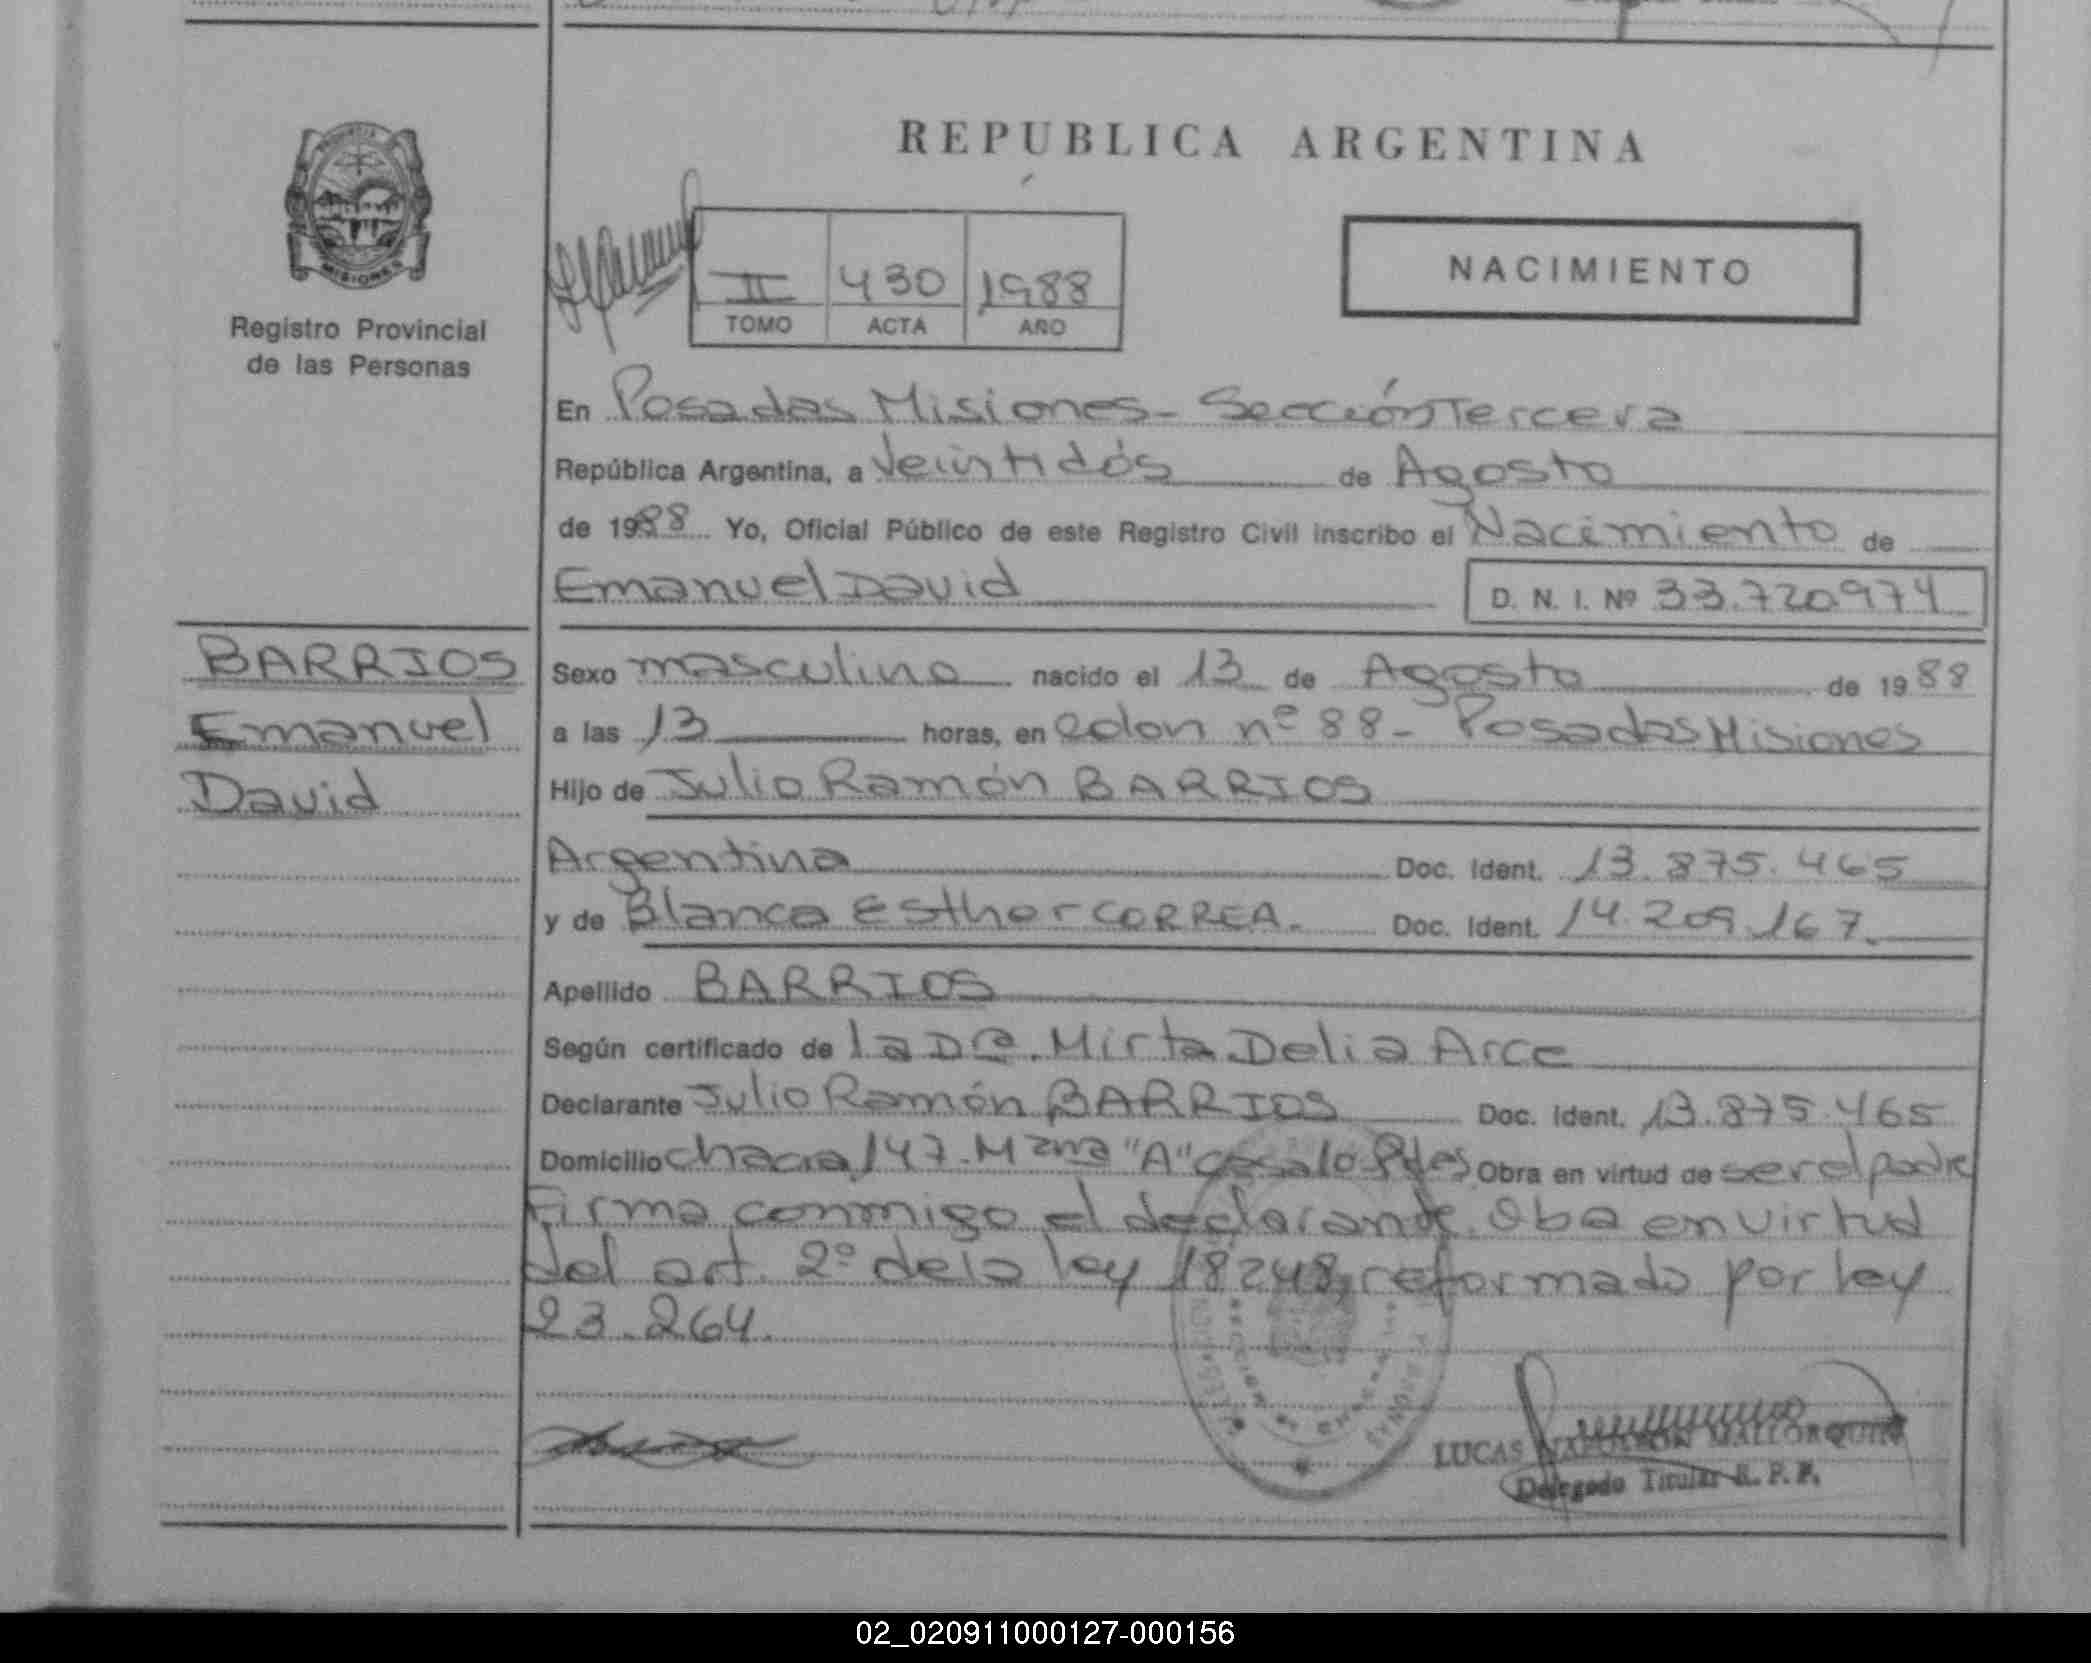 REPUBLICA ARGENTINA
MISIONES
Registro Provincial
de las Personas
II 430 1988
TOMO ACTA AÑO
NACIMIENTO
En Posadas Misiones - Sección Tercera
República Argentina, a Veintidós de Agosto
de 1988 Yo, Oficial Público de este Registro Civil inscribo el Nacimiento de
Emanuel David D. N. I. Nº 33.720.974
BARRIOS
Emanuel
David
Sexo masculino nacido el 13 de Agosto de 1988
a las 13 horas, en colon nº 88 - Posadas Misiones
Hijo de Julio Ramón BARRIOS
Argentina Doc. Ident. 13.875.465
y de Blanca Esther CORREA. Doc. Ident. 14.209.167.
Apellido BARRIOS
Según certificado de la Dra. Mirta Delia Arce
Declarante Julio Ramón BARRIOS Doc. Ident. 13.875.465
Domicilio chacra 147. Mzna "A" casa 10 Pdas Obra en virtud de ser el padre
Firma conmigo el declarante. Oba en virtud
del art. 2º de la ley 18248, reformado por ley
23.264.
LUCAS NAPOLEON MALLORQUIN
Delegado Titular R. P. P.
02_020911000127-000156